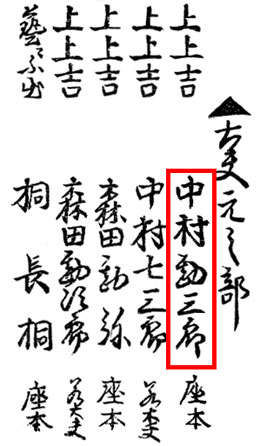 ▲太夫元之部
上上吉 中村勘三郎 座本
上上吉 中村七三郎 若太夫
上上吉 森田勘弥 座本
上上吉 森田勘次郎 若太夫
藝ニ不出 桐長桐 座本